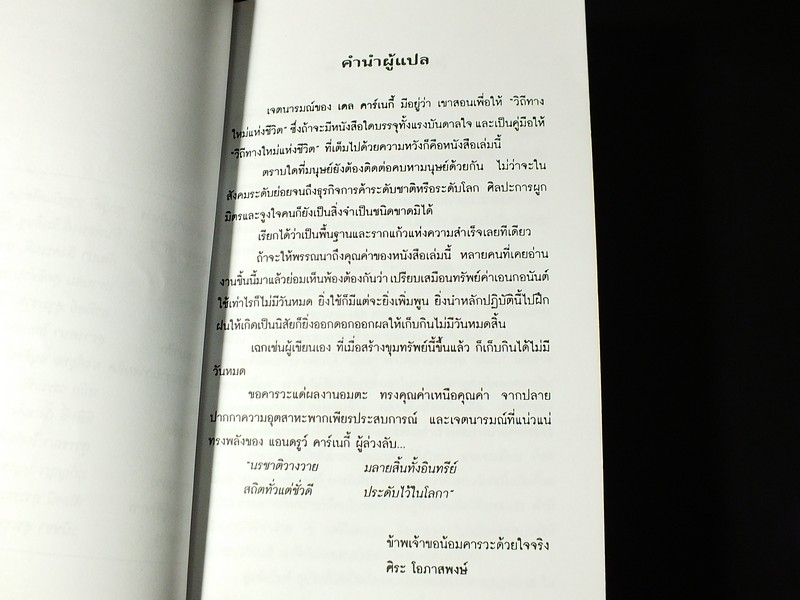 คำนำผู้แปล
เจตนารมณ์ของ เดล คาร์เนกี้ มีอยู่ว่า เขาสอนเพื่อให้ "วิถีทาง
ใหม่แห่งชีวิต" ซึ่งถ้าจะมีหนังสือใดบรรจุทั้งแรงบันดาลใจ และเป็นคู่มือให้
"วิถีทางใหม่แห่งชีวิต" ที่เต็มไปด้วยความหวังก็คือหนังสือเล่มนี้
ตราบใดที่มนุษย์ยังต้องติดต่อคบหามนุษย์ด้วยกัน ไม่ว่าจะใน
สังคมระดับย่อยจนถึงธุรกิจการค้าระดับชาติหรือระดับโลก ศิลปะการผูก
มิตรและจูงใจคนก็ยังเป็นสิ่งจำเป็นชนิดขาดมิได้
เรียกได้ว่าเป็นพื้นฐานและรากแก้วแห่งความสำเร็จเลยทีเดียว
ถ้าจะให้พรรณนาถึงคุณค่าของหนังสือเล่มนี้ หลายคนที่เคยอ่าน
งานชิ้นนี้มาแล้วย่อมเห็นพ้องต้องกันว่า เปรียบเสมือนทรัพย์ค่าเอนกอนันต์
ใช้เท่าไรก็ไม่มีวันหมด ยิ่งใช้ก็มีแต่จะยิ่งเพิ่มพูน ยิ่งนำหลักปฏิบัตินี้ไปฝึก
ฝนให้เกิดเป็นนิสัยก็ยิ่งออกดอกออกผลให้เก็บกินไม่มีวันหมดสิ้น
เฉกเช่นผู้เขียนเอง ที่เมื่อสร้างขุมทรัพย์นี้ขึ้นแล้ว ก็เก็บกินได้ไม่มี
วันหมด
ขอคารวะแด่ผลงานอมตะ ทรงคุณค่าเหนือคุณค่า จากปลาย
ปากกาความอุตสาหะพากเพียรประสบการณ์ และเจตนารมณ์ที่แน่วแน่
ทรงพลังของ แอนดรูว์ คาร์เนกี้ ผู้ล่วงลับ...
"นรชาติวางวาย มลายสิ้นทั้งอินทรีย์
สถิตทั่วแต่ชั่วดี ประดับไว้ในโลกา"
ข้าพเจ้าขอน้อมคารวะด้วยใจจริง
ศิระ โอภาสพงษ์